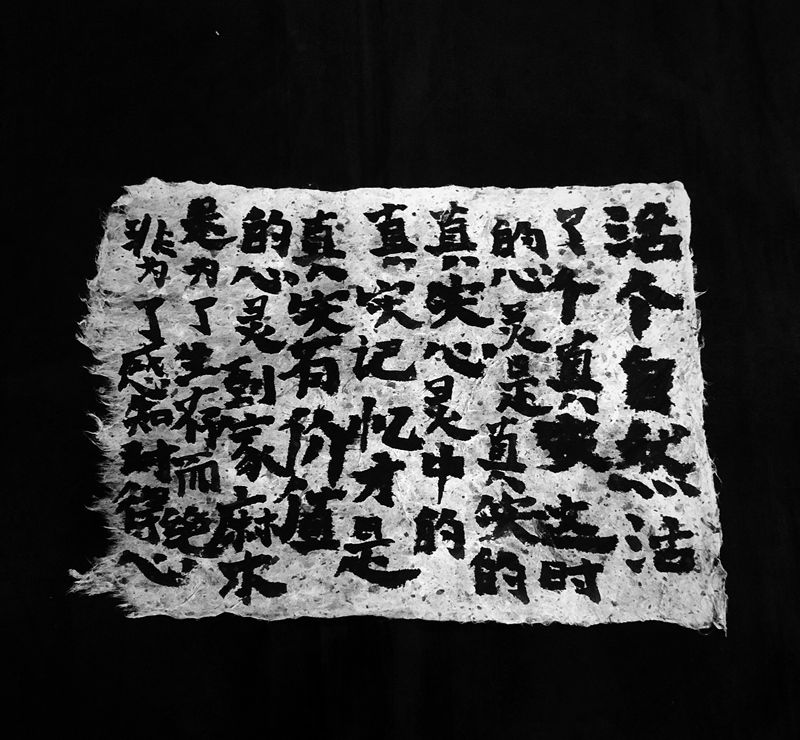 活个自然活
了个真实这时
的心灵是真实的
真实心灵中的
真实记忆才是
真实有价值
的心灵到家麻木
是为了生存而绝
非为了感知时得心